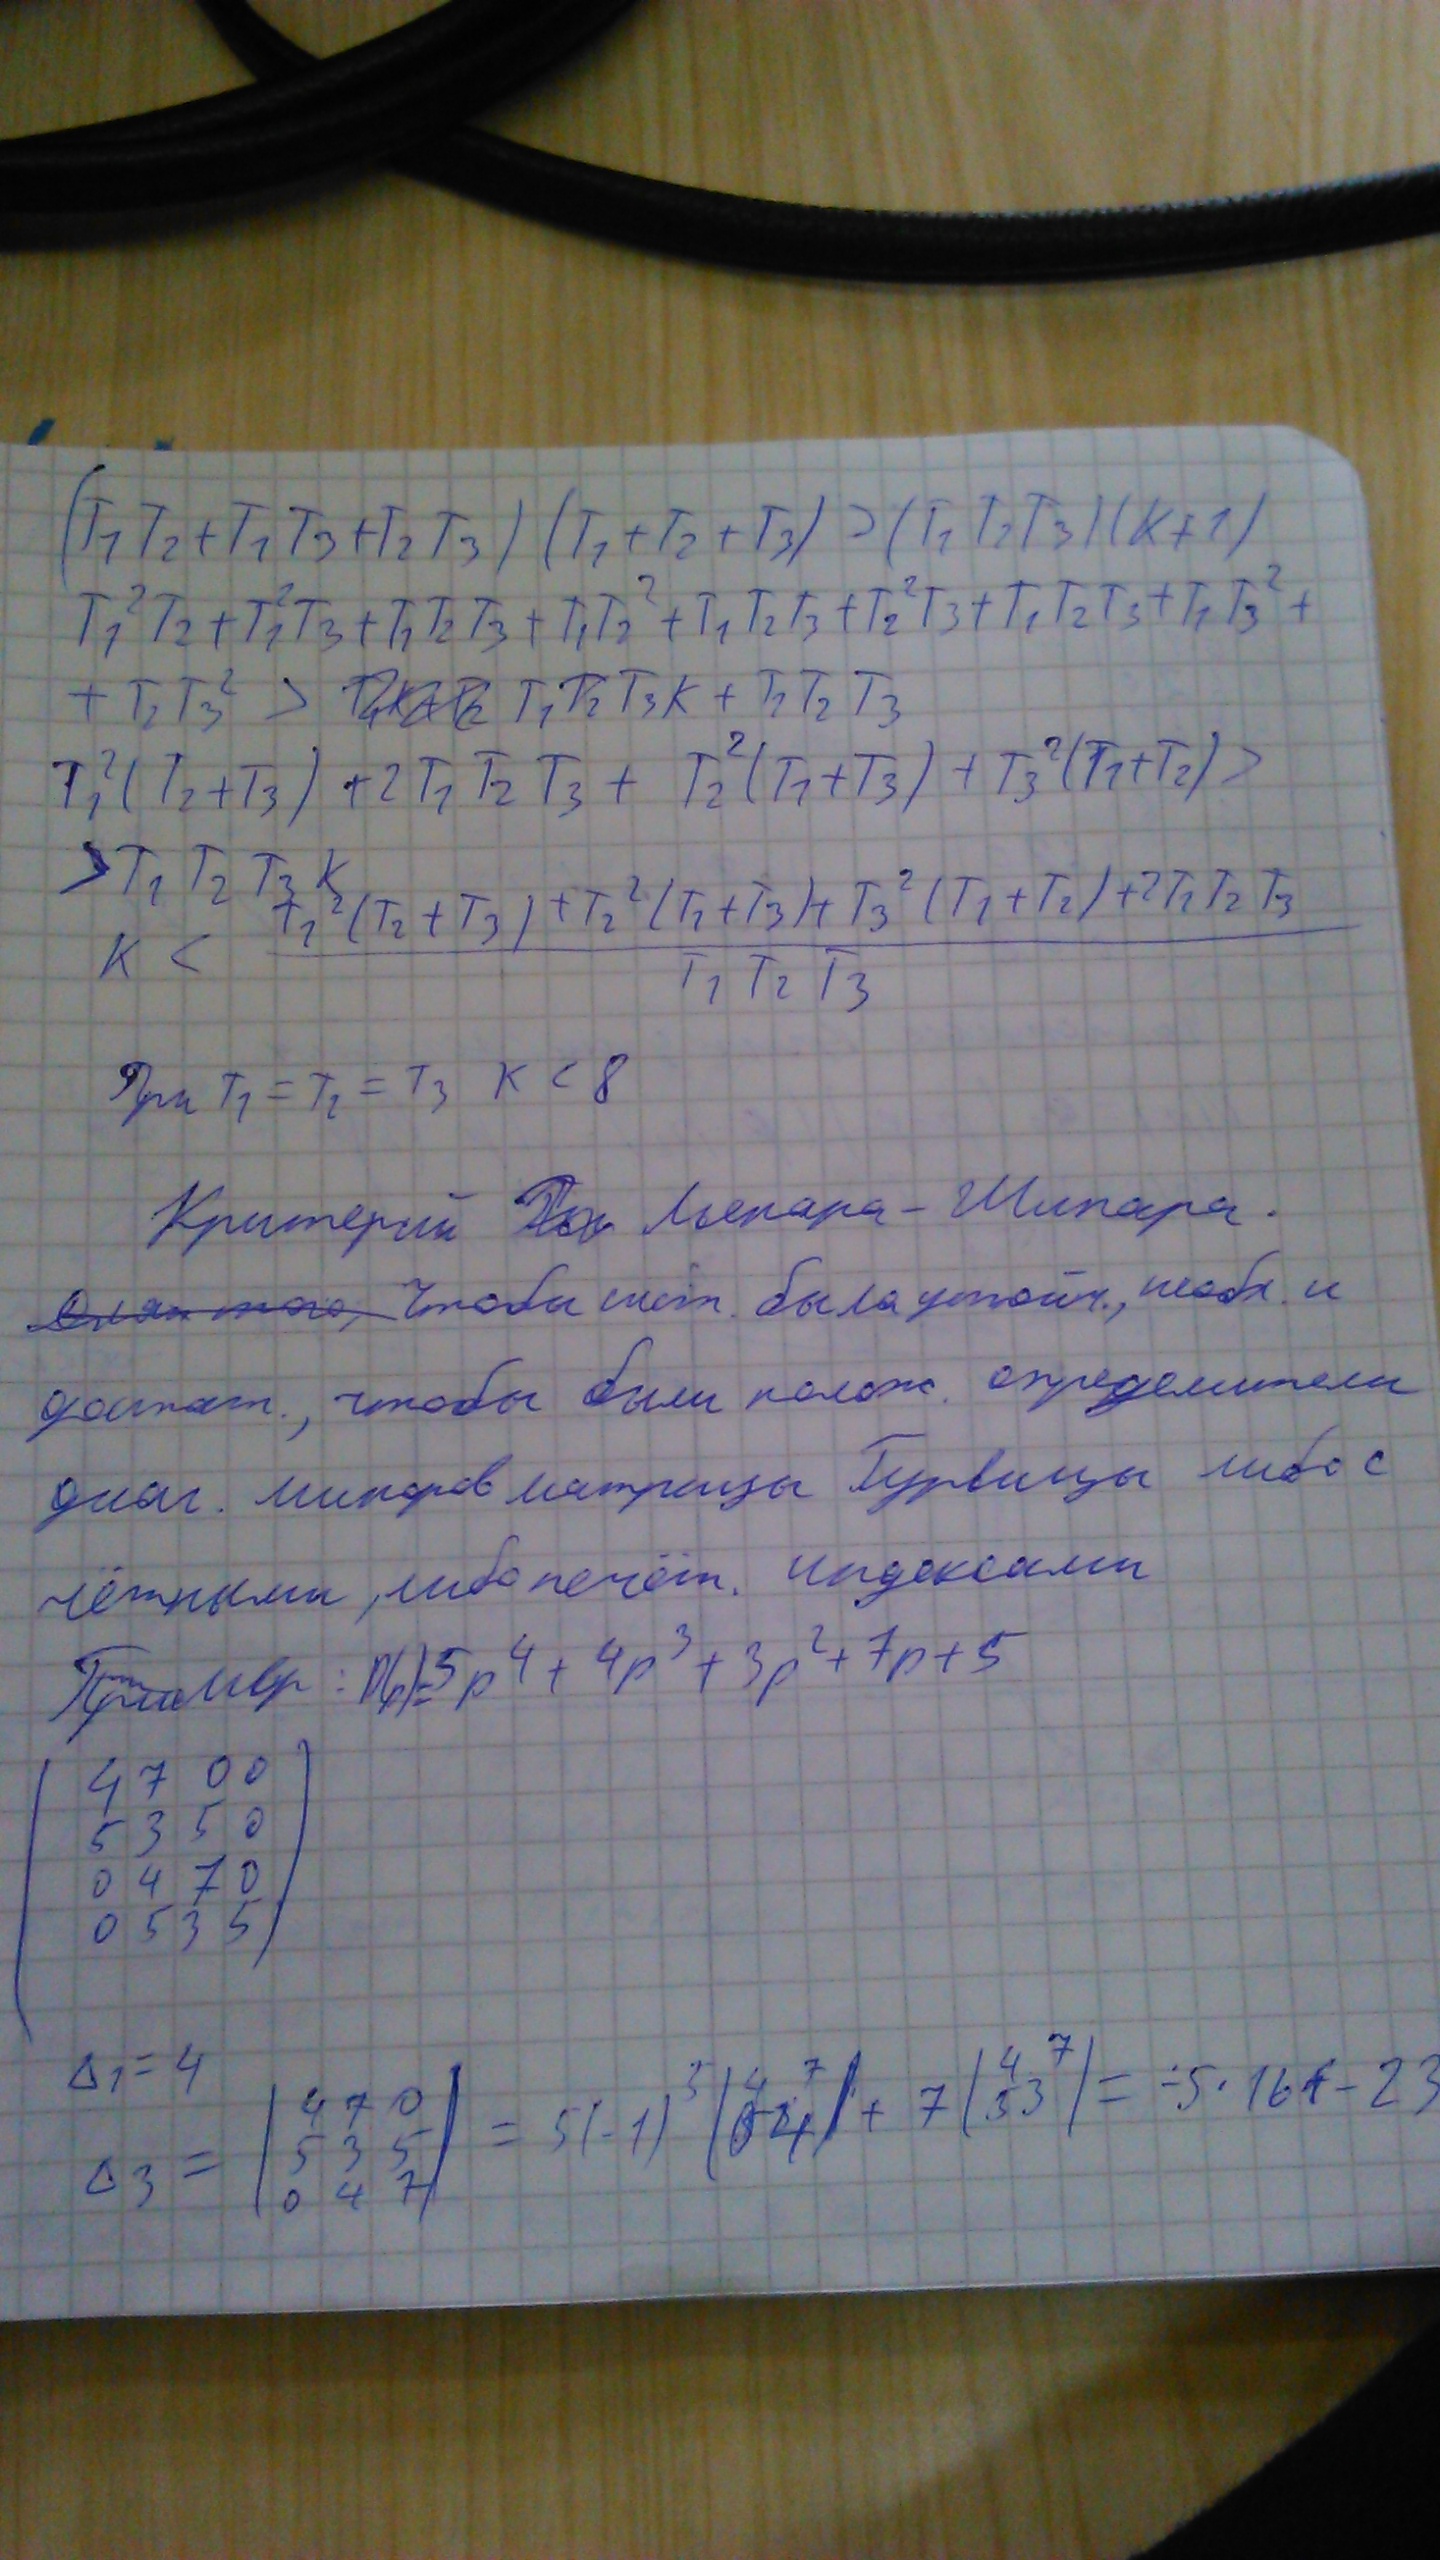 (T₁T₂+T₁T₃+T₂T₃)(T₁+T₂+T₃)>(T₁T₂T₃)(K+1)
T₁²T₂+T₁²T₃+T₁T₂T₃+T₁T₂²+T₁T₂T₃+T₂²T₃+T₁T₂T₃+T₁T₃²+
+T₂T₃² > T₁T₂T₃K+T₁T₂T₃
T₁²(T₂+T₃)+2T₁T₂T₃+T₂²(T₁+T₃)+T₃²(T₁+T₂)>
>T₁T₂T₃K
K < (T₁²(T₂+T₃)+T₂²(T₁+T₃)+T₃²(T₁+T₂)+2T₁T₂T₃) / (T₁T₂T₃)
При T₁=T₂=T₃ K<8
Критерий Льенара-Шипара.
Чтобы сист. была устойч., необх. и
достат., чтобы были полож. определители
диаг. миноров матрицы Гурвицы либо с
чётными, либо нечёт. индексами
Пример: D(p)=5p⁴+4p³+3p²+7p+5
4 7 0 0
5 3 5 0
0 4 7 0
0 5 3 5
Δ₁=4
Δ₃ = |4 7 0; 5 3 5; 0 4 7| = 5(-1) + 7 =